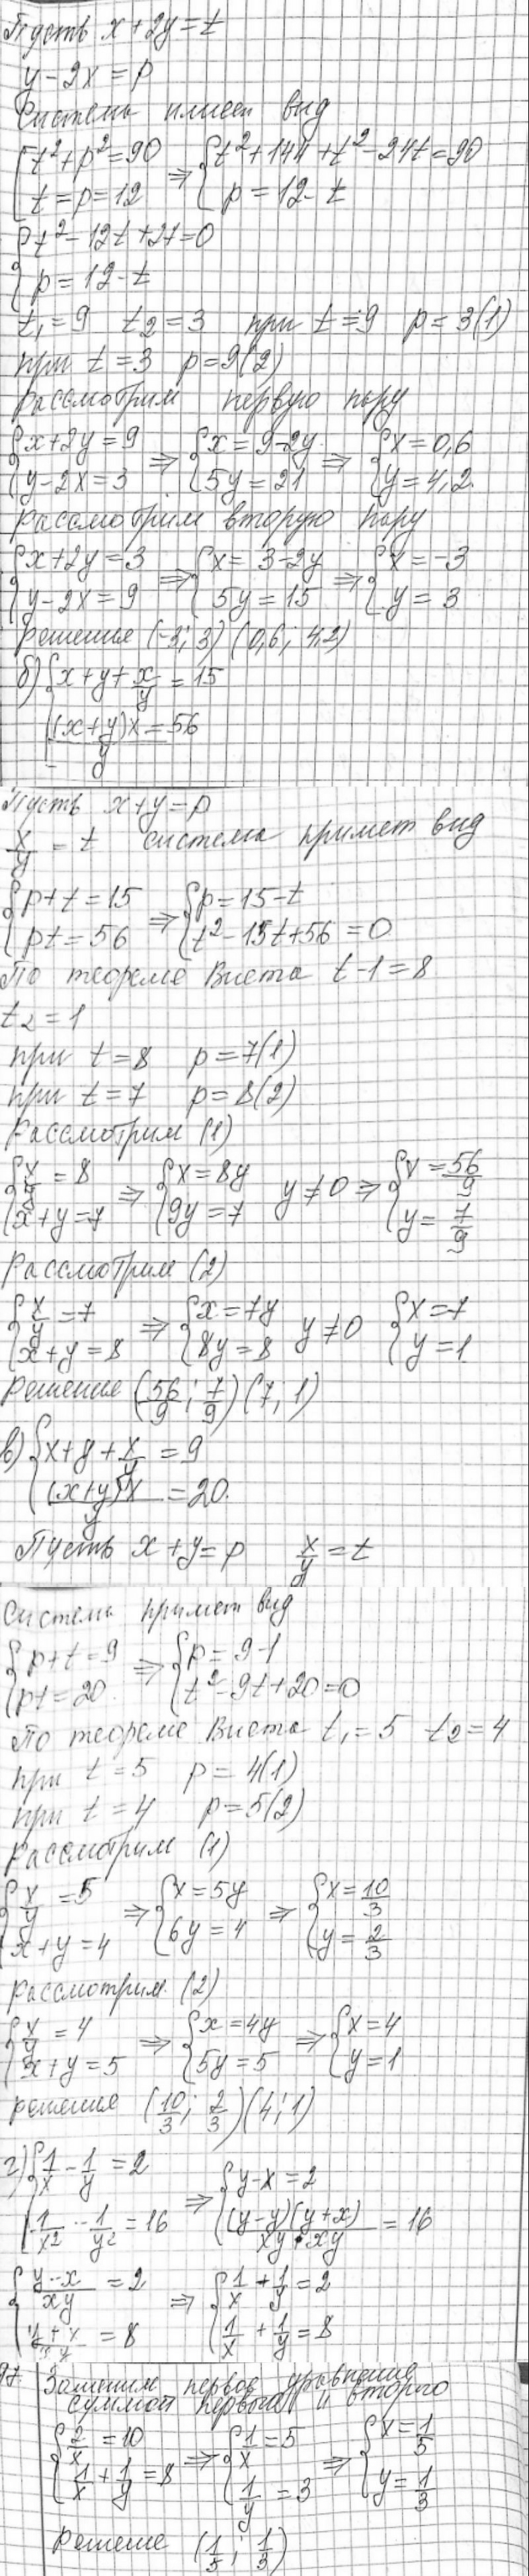 Пусть x + 2y = t
y - 2x = p
Система имеет вид
{t² + p² = 90 ⇒ {t² + 144 + t² - 24t = 90
{t = p = 12 {p = 12 - t
{t² - 12t + 27 = 0
{p = 12 - t
t₁ = 9 t₂ = 3 при t = 9 p = 3 (1)
при t = 3 p = 9 (2)
Рассмотрим первую пару
{x + 2y = 9 ⇒ {x = 9 - 2y ⇒ {x = 0,6
{y - 2x = 3 {5y = 21 {y = 4,2.
Рассмотрим вторую пару
{x + 2y = 3 ⇒ {x = 3 - 2y ⇒ {x = -3
{y - 2x = 9 {5y = 15 {y = 3
Решение (-3; 3) (0,6; 4,2)
б) {x + y + x/y = 15
{(x + y)x/y = 56
Пусть x + y = p
x/y = t система примет вид
{p + t = 15 ⇒ {p = 15 - t
{pt = 56 {t² - 15t + 56 = 0
По теореме Виета t - 1 = 8
t₂ = 1
при t = 8 p = 7 (1)
при t = 7 p = 8 (2)
Рассмотрим (1)
{x/y = 8 ⇒ {x = 8y y ≠ 0 ⇒ {x = 56/9
{x + y = 7 {9y = 7 {y = 7/9
Рассмотрим (2)
{x/y = 7 ⇒ {x = 7y y ≠ 0 {x = 7
{x + y = 8 {8y = 8 {y = 1
Решение (56/9; 7/9) (7; 1)
в) {x + y + x/y = 9
{(x + y)x/y = 20.
Пусть x + y = p x/y = t
Система примет вид
{p + t = 9 ⇒ {p = 9 - 1
{pt = 20. {t² - 9t + 20 = 0
По теореме Виета t₁ = 5 t₂ = 4
при t = 5 p = 4 (1)
при t = 4 p = 5 (2)
Рассмотрим (1)
{x/y = 5 ⇒ {x = 5y ⇒ {x = 10/3
{x + y = 4 {6y = 4 {y = 2/3
Рассмотрим (2)
{x/y = 4 ⇒ {x = 4y ⇒ {x = 4
{x + y = 5 {5y = 5 {y = 1
решение (10/3; 2/3) (4; 1)
г) {1/x - 1/y = 2 ⇒ {y - x = 2
{1/x² - 1/y² = 16 {(y - y)(y + x)/xy · xy = 16
{y - x/xy = 2 ⇒ {1/x + 1/y = 2
{y + x/xy = 8 {1/x + 1/y = 8
97. Заменим первое уравнение
суммой первого и второго
{2/x = 10 ⇒ {1/x = 5 ⇒ {x = 1/5
{1/x + 1/y = 8 {1/y = 3 {y = 1/3
Решение (1/5; 1/3)